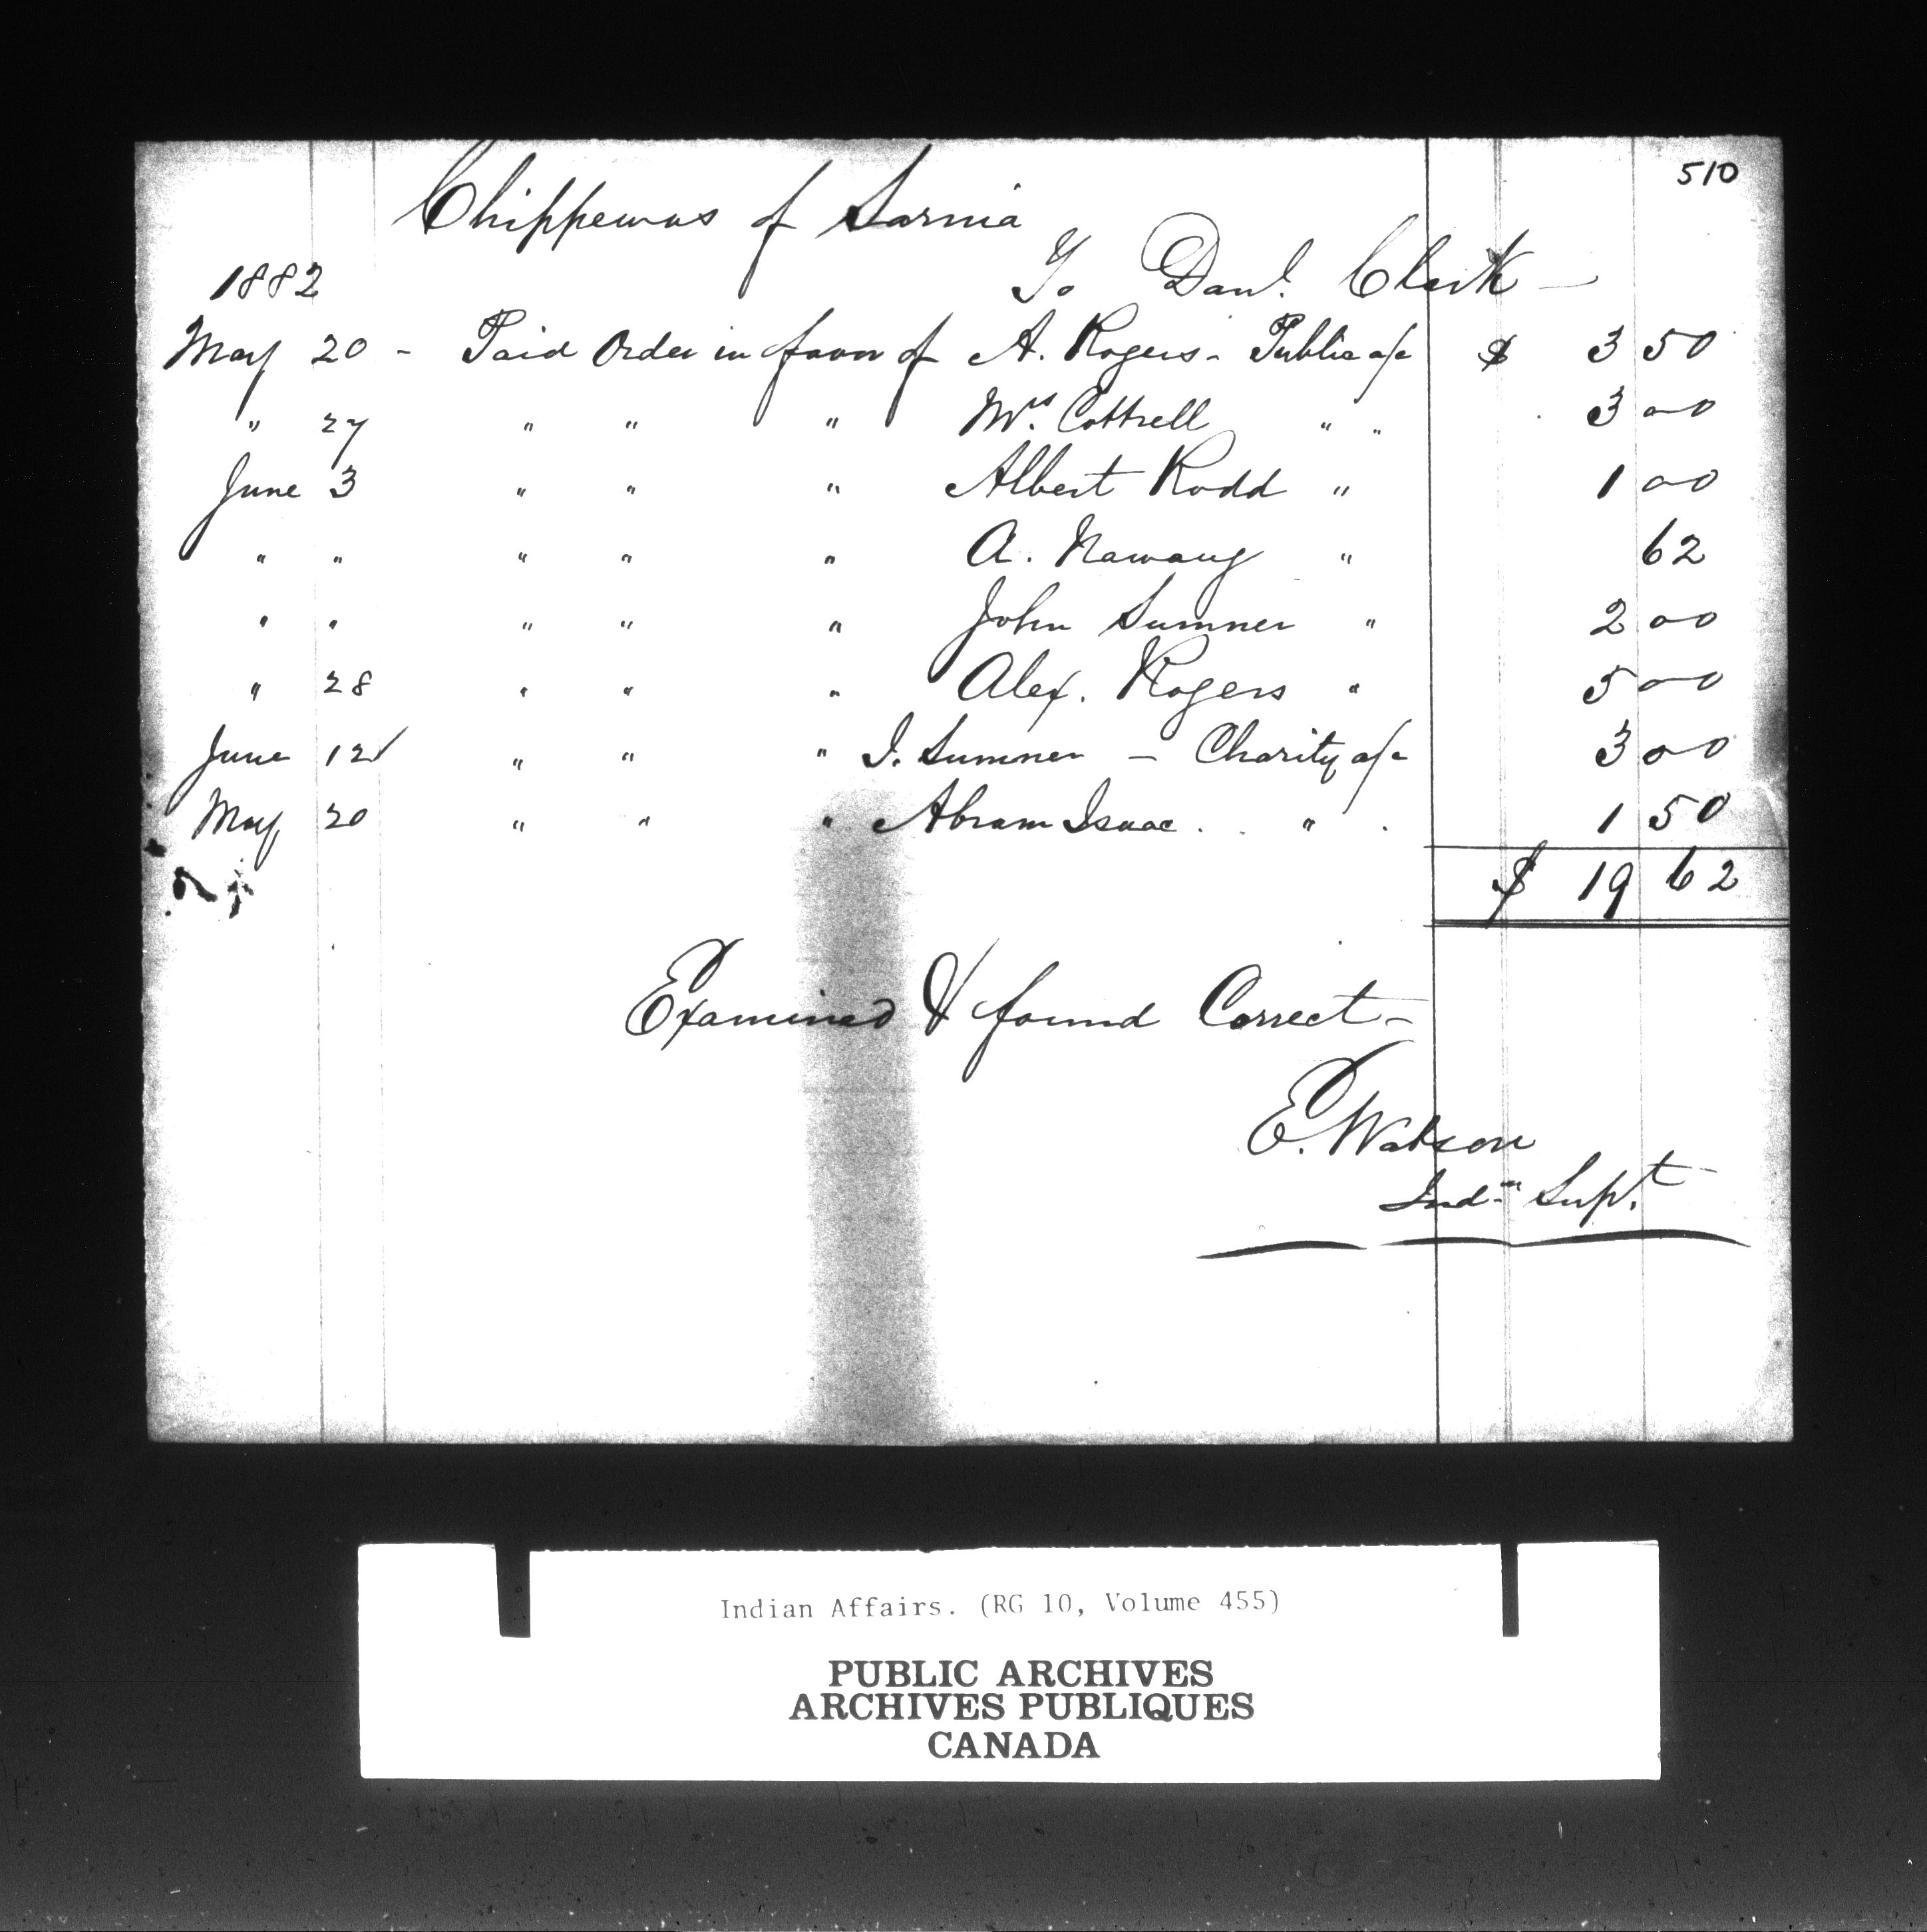 510
Chippewas of Sarnia
1882 To Danl. Clark —
May 20 - Paid Order in favor of A. Rogers - Public a/c $ 3 50
" 27 " " " Mrs. Cottrell " " 3 00
June 3 " " " Albert Rodd " 1 00
" " " " " A. Nawaug " 62
" " " " " John Sumner " 2 00
" 28 " " " Alex. Rogers " 5 00
June 12 " " " J. Sumner — Charity a/c 3 00
May 20 " " " Abram Isaac . . " . 1 50
$ 19 62
Examined & found Correct -
E. Watson
Indn Supt.
Indian Affairs. (RG 10, Volume 455)
PUBLIC ARCHIVES
ARCHIVES PUBLIQUES
CANADA